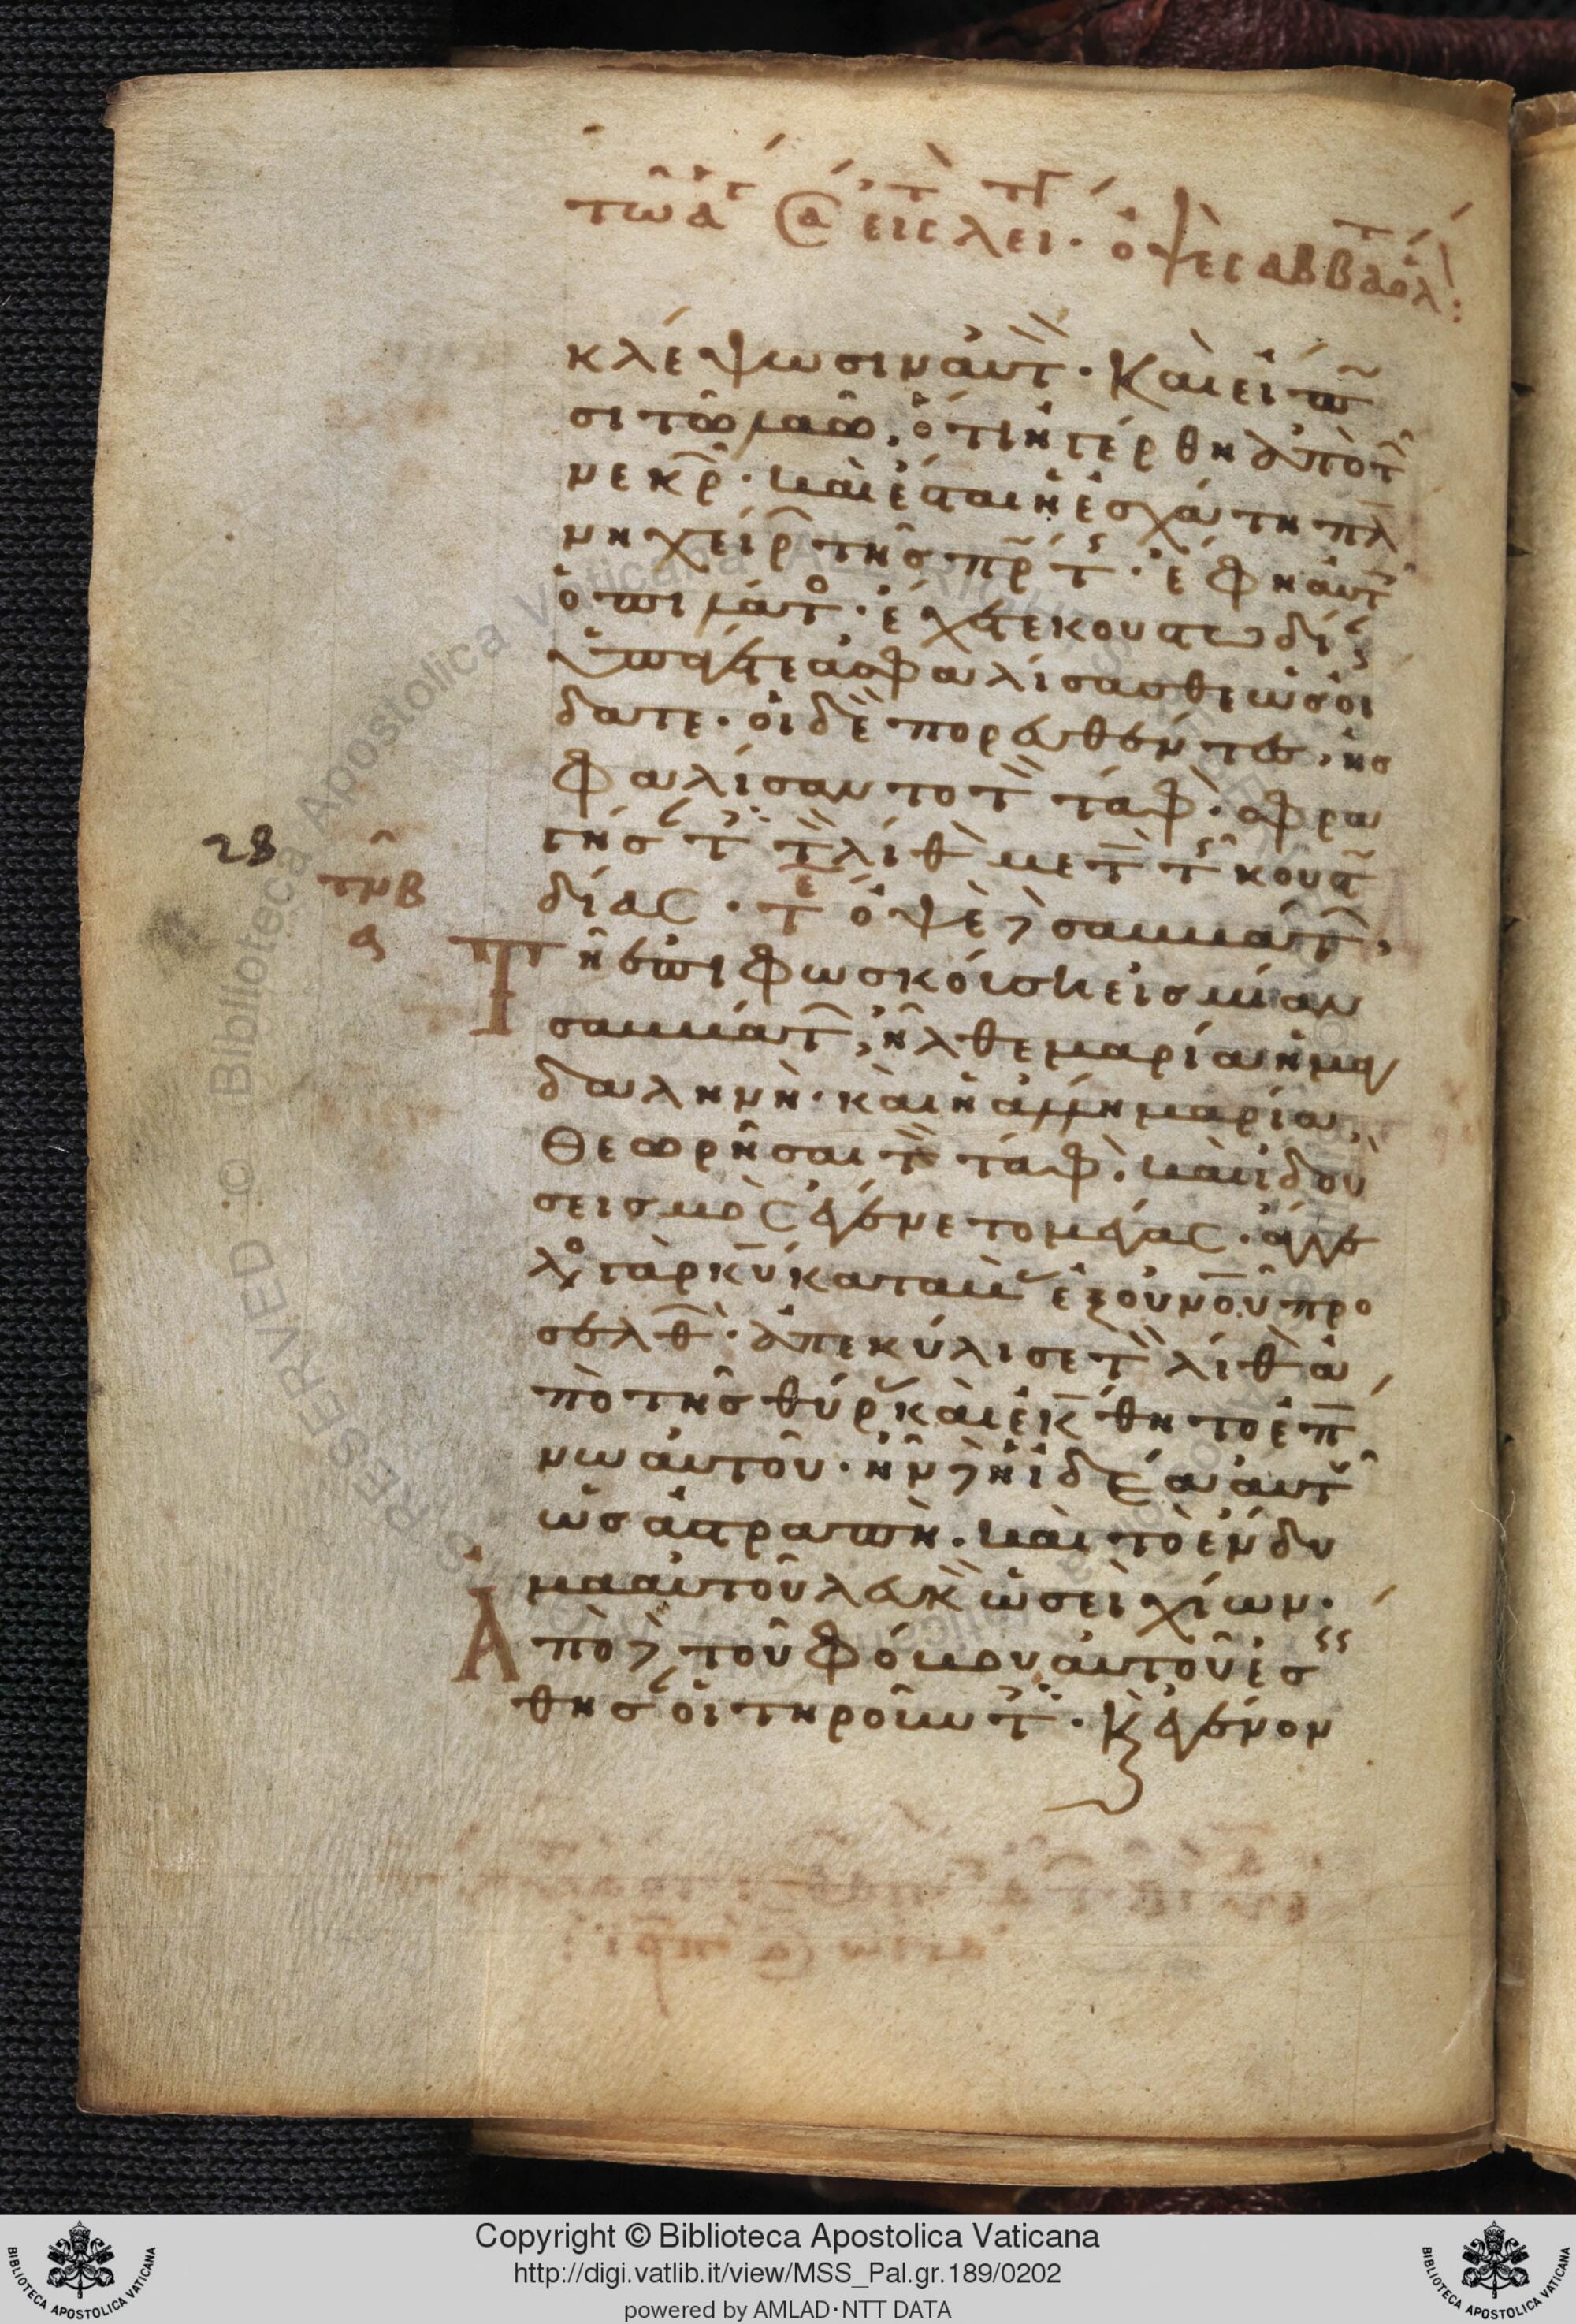 κλέψωσιν αὐτ · Καὶ εἴπω
σι τῶ λαῶ, ὅτι ἠγέρθη ἀπὸ τ
νεκρ · καὶ ἔσται ἡ ἐσχάτη πλ
νη χείρ τῆς πρ τ · ἔφη αὐτ
ὁ πιλάτ · ἔχετε κουστωδί
ὑπάγετε ἀσφαλίσασθε ὡς οἴ
δατε · οἱ δὲ πορευθέντες, ἠσ
φαλίσαντο τ τάφ · σφρα
28
γήσ τ τ λίθ μετ τ κουστ
τμβ
δίας · τε ὀψὲ δὲ σαββάτ,
ς
Τῆ ἐπιφωσκούση εἰς μίαν
σαββάτ, ἦλθε μαρία ἡ μαγ
δαληνὴ · καὶ ἡ ἄλλη μαρία,
θεωρῆσαι τ τάφ · καὶ ἰδοὺ
σεισμὸς ἐγένετο μέγας · ἄγγε
λος γὰρ κυ καταβ ἐξ οὐνοῦ προ
σελθ · ἀπεκύλισε τ λίθ ἀ
πὸ τῆς θύρ καὶ ἐκ θητο ἐπ
νω αὐτοῦ · ἦν δὲ ἡ ἰδέα αὐτ
ὡς ἀστραπὴ · καὶ τὸ ἔνδυ
μα αὐτοῦ λευκ ὡσεὶ χίων ·
Ἀπὸ δὲ τοῦ φόβου αὐτοῦ ἐσ
θησ οἱ τηροῦντ · Κ ἐγένον
Copyright © Biblioteca Apostolica Vaticana
http://digi.vatlib.it/view/MSS_Pal.gr.189/0202
powered by AMLAD·NTT DATA
BIBLIOTECA APOSTOLICA VATICANA
BIBLIOTECA APOSTOLICA VATICANA